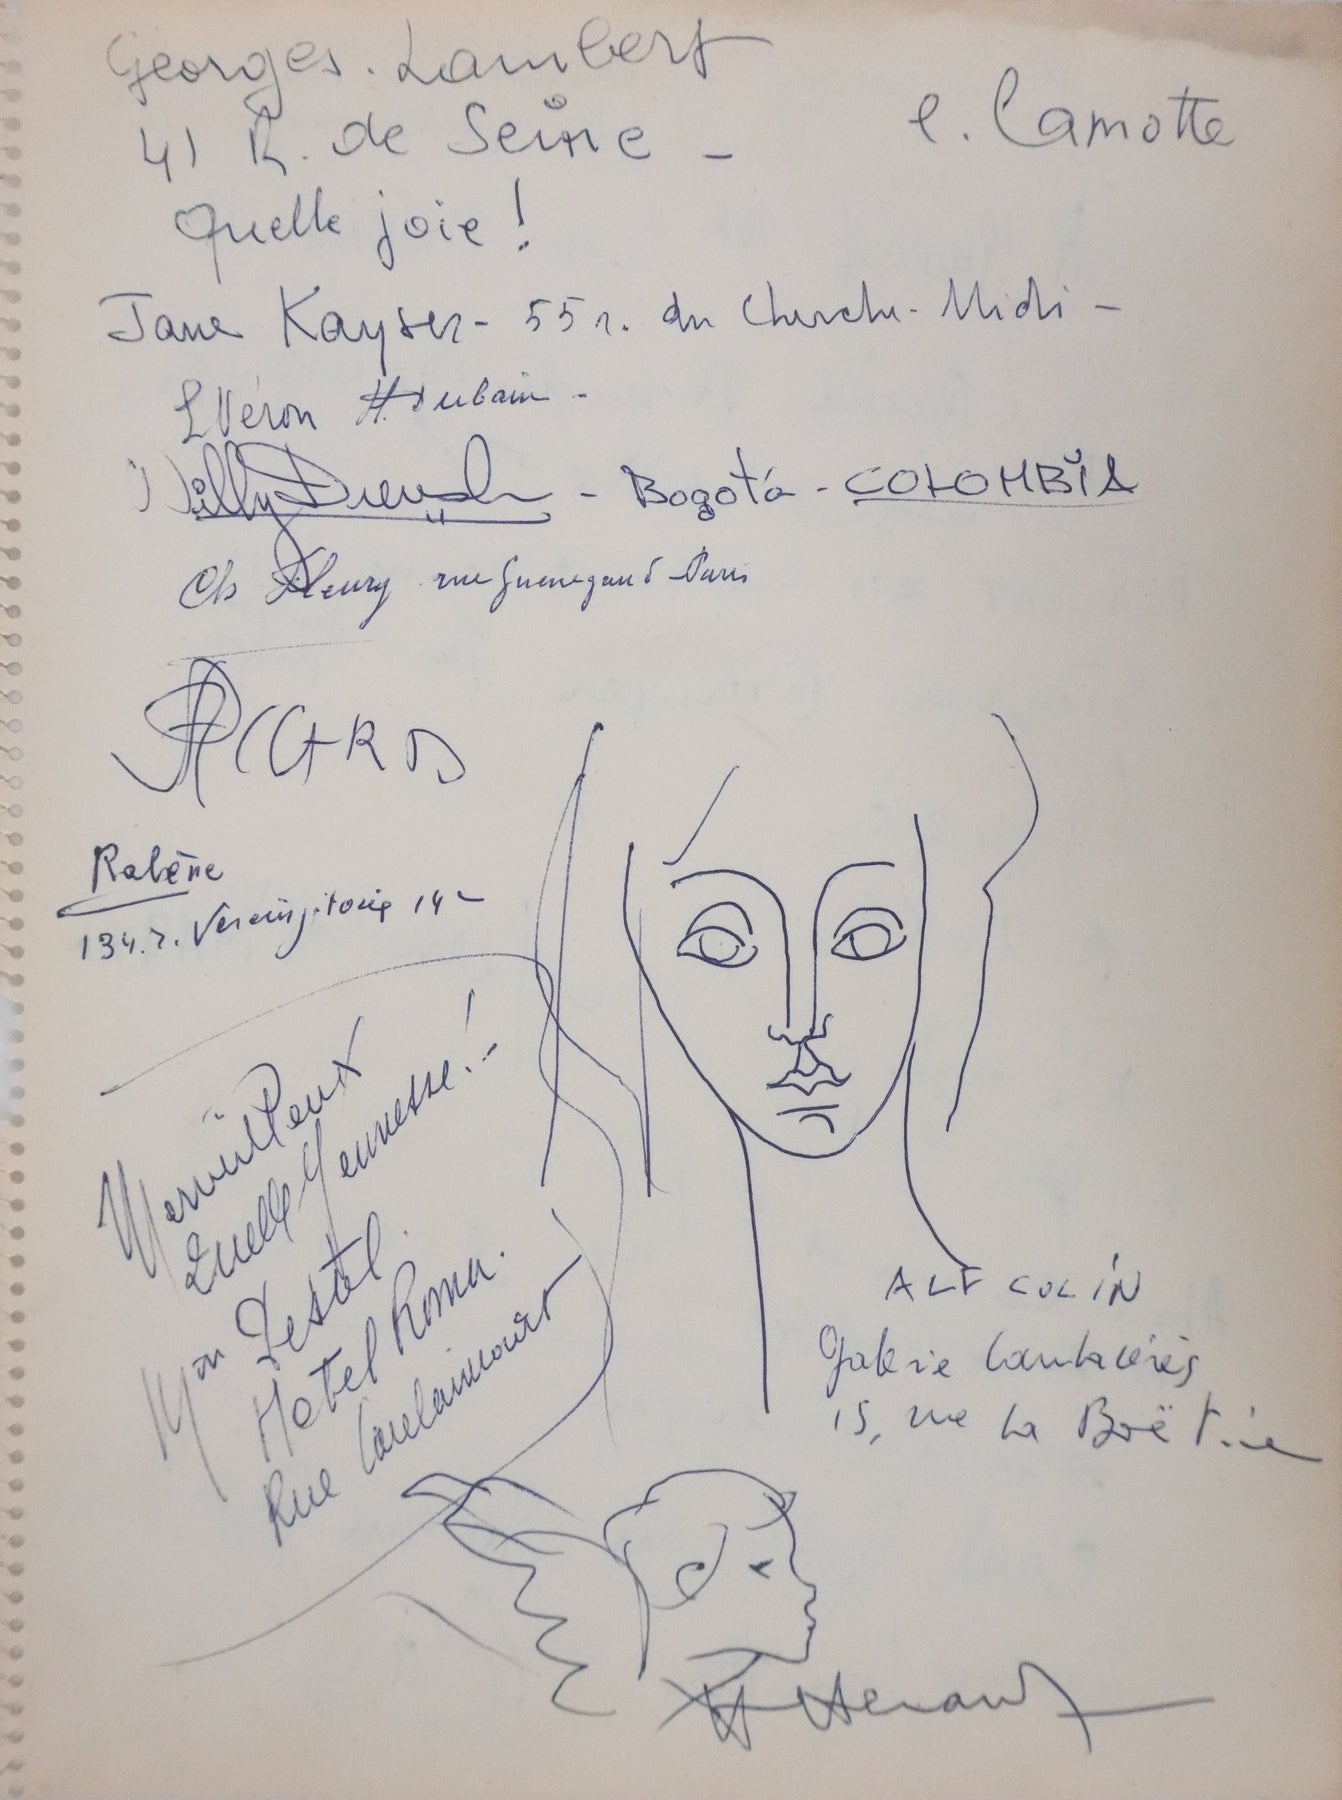 Georges. Lambert
e. Lamotte
41 R. de Seine -
Quelle joie !
Jane Kayser - 55 r. du Cherche-Midi -
L Véron H. Durbain -
Willy - Bogotá - COLOMBIA
Ch Fleury rue Guenegaud Paris
Rabène
134. r. Vercingétorix 14
Merveilleux
Quelle Jeunesse ! -
Mon Testal.
Hotel Roma.
Rue Caulaincourt
ALF COLIN
Galerie
15, rue La Boëtie